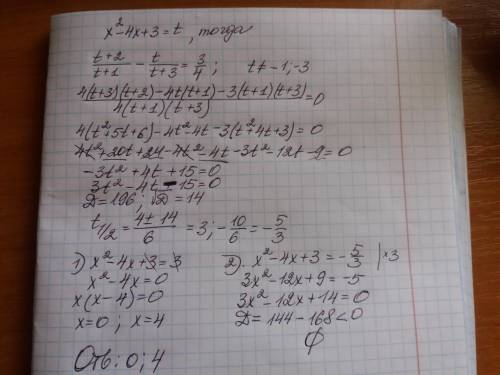 x²-4x+3=t, тогда
(t+2)/(t+1) - t/(t+3) = 3/4; t≠-1;-3
(4(t+3)(t+2)-4t(t+1)-3(t+1)(t+3))/(4(t+1)(t+3))=0
4(t²+5t+6)-4t²-4t-3(t²+4t+3)=0
4t²+20t+24-4t²-4t-3t²-12t-9=0
-3t²+4t+15=0
3t²-4t-15=0
D=196; √D=14
t1/2=(4±14)/6=3; -10/6=-5/3
1) x²-4x+3=3
x²-4x=0
x(x-4)=0
x=0; x=4
2). x²-4x+3=-5/3 |×3
3x²-12x+9=-5
3x²-12x+14=0
D=144-168<0
∅
Отв: 0; 4